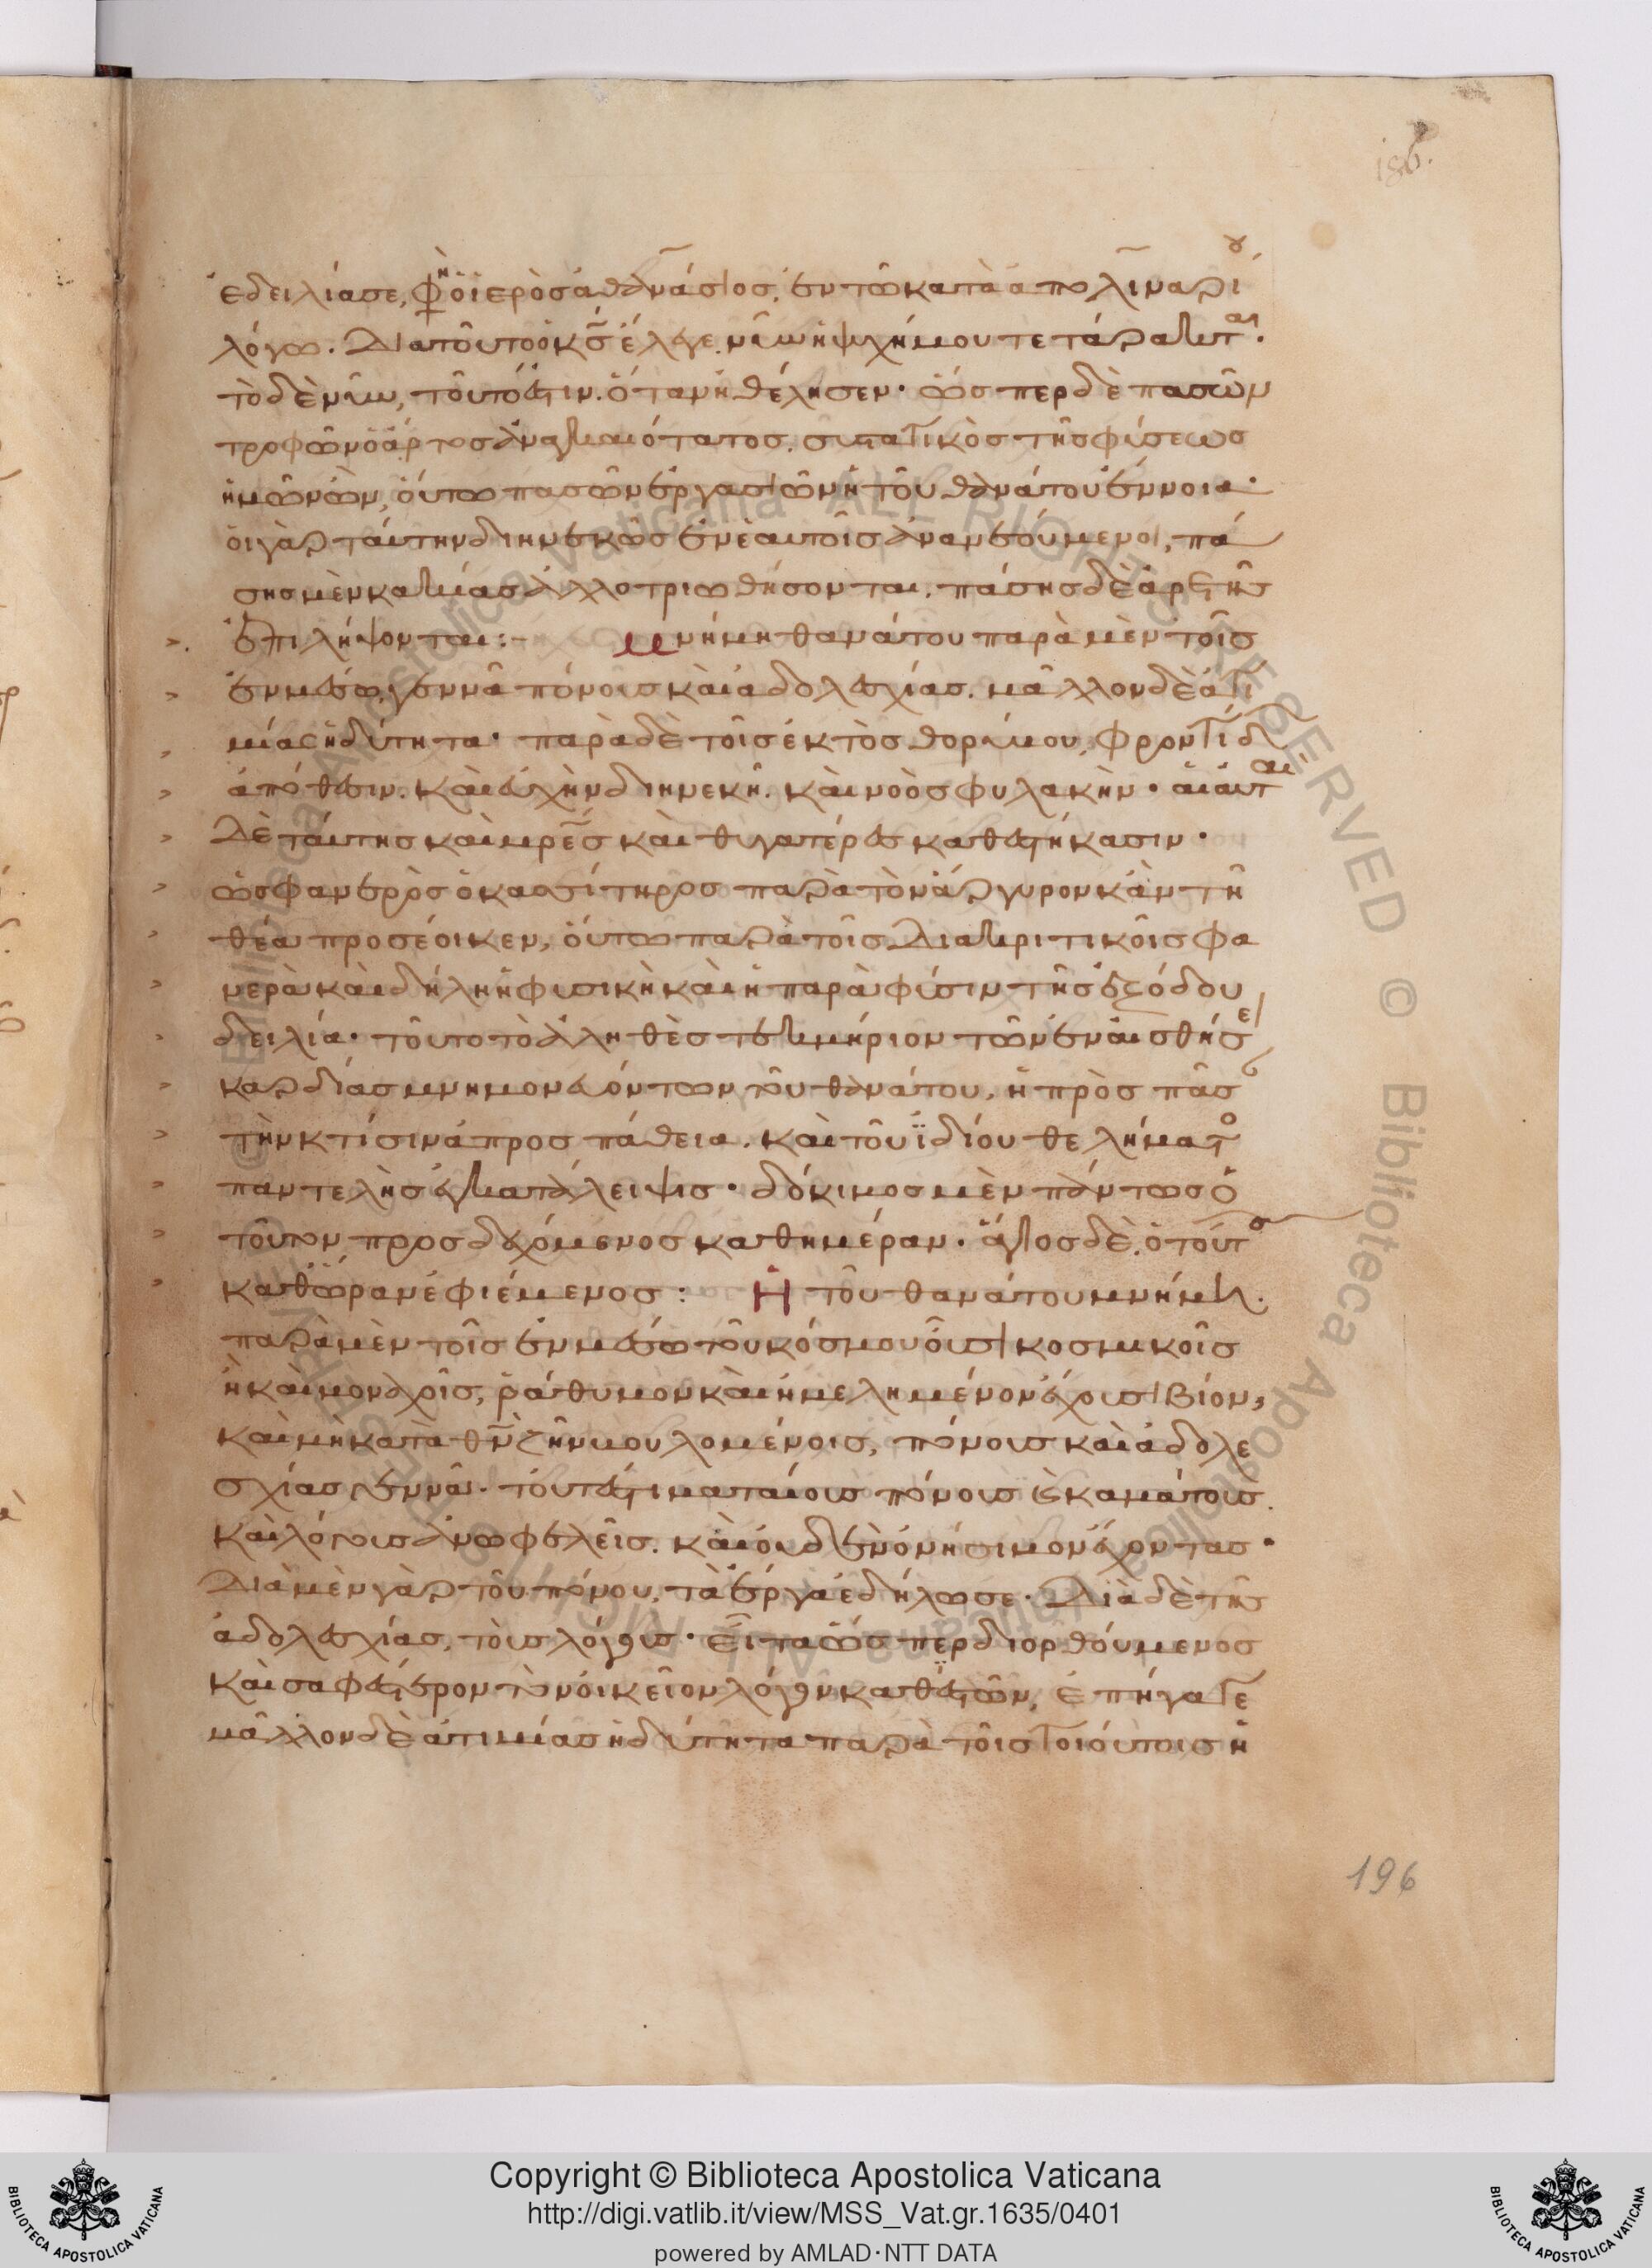 186.
ἐδειλίασε, φη ὁ ἱερὸς ἀθανάσιος, ἐν τῶ κατὰ ἀπολιναρίου
λόγω. διατοῦτο ὁ κς ἔλεγε. νῦν ἡ ψυχή μου τετάρακται.
τὸ δὲ νῦν, τοῦτό ἐστιν. ὅταν ἠθέλησεν. ὥσπερ δὲ πασῶν
τροφῶν ὁ ἄρτος ἀναγκαιότατος. συστατικὸς τῆς φύσεως
ἡμῶν ὤν, οὕτω πασῶν ἐργασιῶν ἡ τοῦ θανάτου ἔννοια.
οἱ γὰρ ταύτην διηνεκῶς ἐν ἑαυτοῖς ἀνανεούμενοι, πά
σης μὲν κακίας ἀλλοτριωθήσονται. πάσης δὲ ἀρετῆς
ἐπιλήψονται:- μνήμη θανάτου παρὰ μὲν τοῖς
ἐν μέσω, γεννᾶ πόνους καὶ ἀδολεσχίας. μᾶλλον δὲ ἀτι
μίας ἡδύτητα. παρὰ δὲ τοῖς ἐκτὸς θορύβου, φροντίδων
ἀπόθεσιν. καὶ εὐχὴν διηνεκῆ. καὶ νοὸς φυλακήν. αἱ αυται
δὲ ταύτης καὶ μρες καὶ θυγατέρες καθεστήκασιν.
ὡς φανερὸς ὁ κασσίτηρος παρὰ τὸν ἄργυρον κἂν τῆ
θέα προσέοικεν, οὕτω παρὰ τοῖς διακριτικοῖς φα
νερὰ καὶ δήλη ἡ φυσικὴ καὶ ἡ παρὰ φύσιν τῆς ἐξόδου
δειλία. τοῦτο τὸ ἀληθὲς τεκμήριον τῶν ἐν αἰσθήσει
καρδίας μνημονευόντων τοῦ θανάτου, ἡ πρὸς πᾶσαν
τὴν κτίσιν ἀπροσπάθεια. καὶ τοῦ ἰδίου θελήματος
παντελὴς ἐγκατάλειψις. δόκιμος μὲν πάντως ὁ
τοῦτον προσδεχόμενος καθημέραν. ἅγιος δὲ, ὁ τοῦτον
καθ ὥραν ἐφιέμενος: ἡ τοῦ θανάτου μνήμη.
παρὰ μὲν τοῖς ἐν μέσω τοῦ κόσμου οὖσι κοσμικοῖς
ἢ καὶ μοναχοῖς, ῥάθυμον καὶ ἠμελημένον ἔχουσι βίον,
καὶ μὴ κατὰ θν ζῆν βουλομένοις, πόνους καὶ ἀδολε
σχίας γεννᾶ. τουτέστι ματαίους πόνους καὶ καμάτους.
καὶ λόγους ἀνωφελεῖς. καὶ οὐδὲν ὀνήσιμον ἔχοντας.
διὰ μὲν γὰρ τοῦ πόνου, τὰ ἔργα ἐδήλωσε. διὰ δὲ τῆς
ἀδολεσχίας, τοὺς λόγους. εἶτα ὥσπερ διορθούμενος
καὶ σαφέστερον τὸν οἰκεῖον λόγον καθιστῶν, ἐπήγαγε
μᾶλλον δὲ ἀτιμίας ἡδύτητα παρὰ τοῖς τοιούτοις ἡ
196
Copyright © Biblioteca Apostolica Vaticana
http://digi.vatlib.it/view/MSS_Vat.gr.1635/0401
powered by AMLAD·NTT DATA
BIBLIOTECA APOSTOLICA VATICANA
BIBLIOTECA APOSTOLICA VATICANA